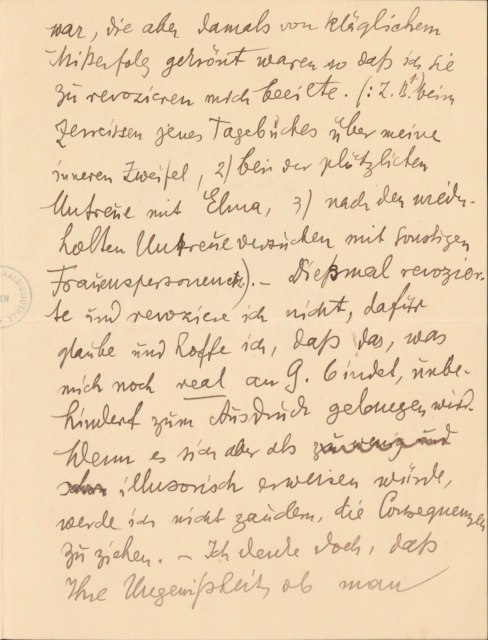 war, die aber damals von kläglichem
Mißerfolg gekrönt waren so daß ich sie
zu revozieren mich beeilte. (: Z. B. 1) beim
Zerreissen jenes Tagebuches über meine
inneren Zweifel, 2) bei der plötzlichen
Untreue mit Elma, 3) nach den wieder-
holten Untreueversuchen mit sonstigen
Frauenspersonen). – Dießmal revozier-
te und revoziere ich nicht, dafür
glaube und hoffe ich, daß das, was
mich noch real an G. bindet, unbe-
hindert zum Ausdruck gelangen wird.
Wenn es sich aber als zu wenig und
illusorisch erweisen würde,
werde ich nicht zaudern, die Consequenzen
zu ziehen. – Ich denke doch, daß
Ihre Ungewißheit, ob man